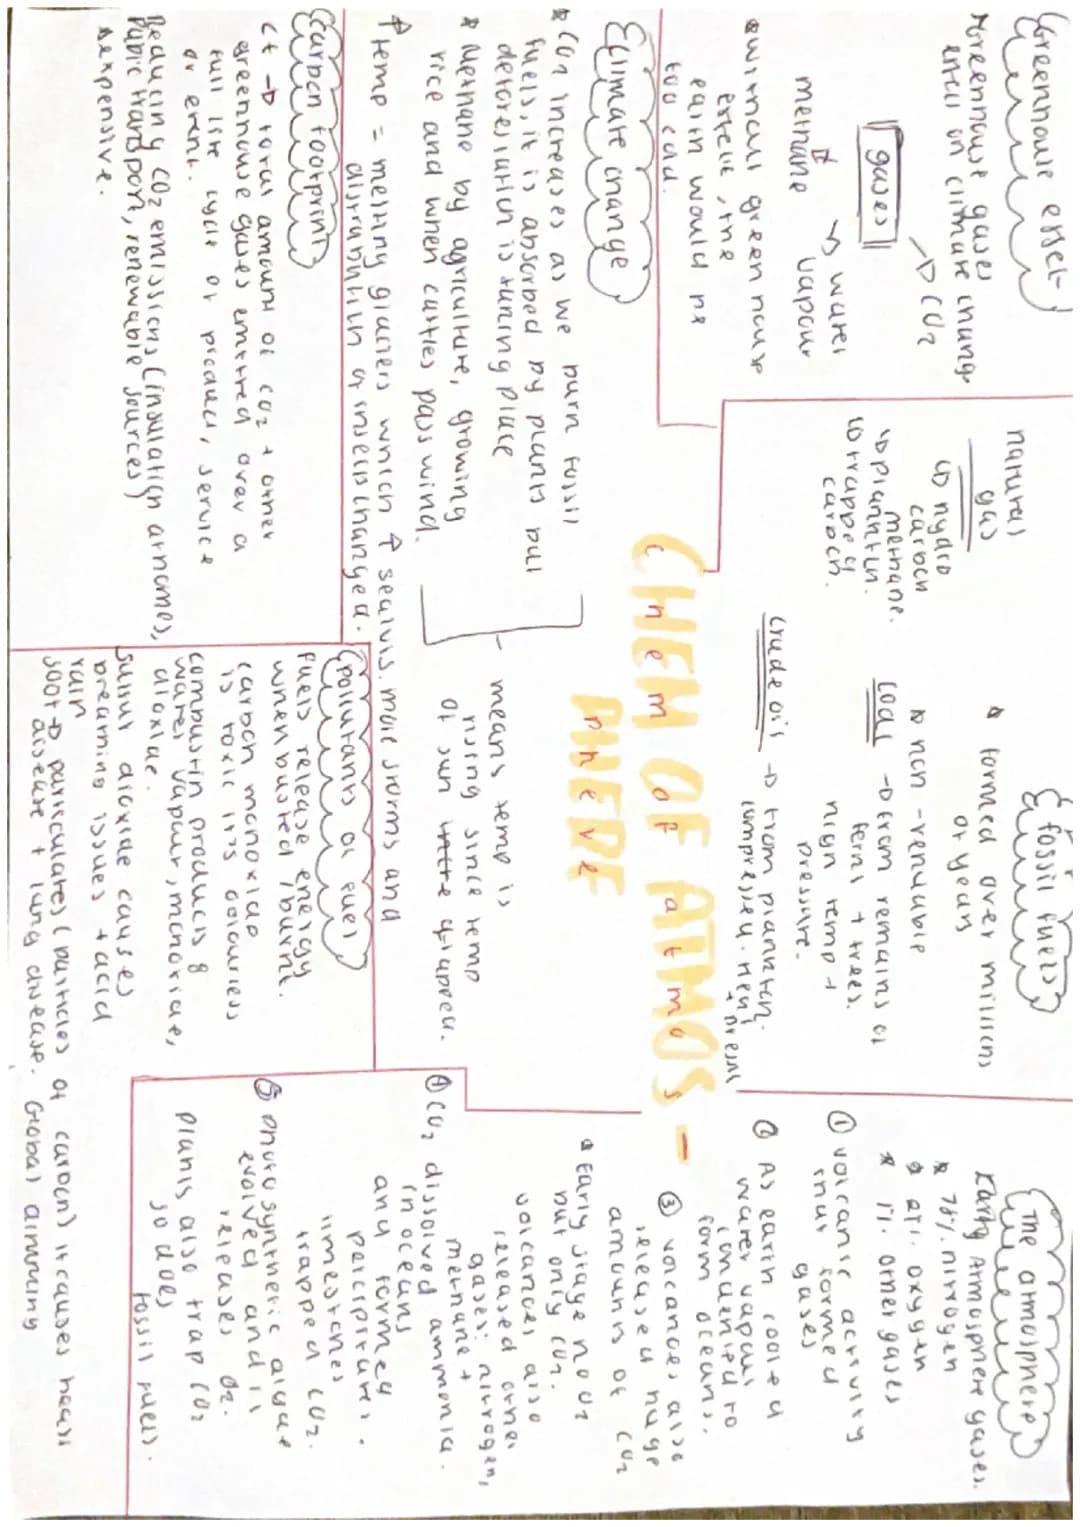 CHEM OF ATMOS -
PHERE
chem of atmos
phere
Greenhouse effect
Greenhouse gases
effect on climate change
gases
→ CO2
→ water
vapour
methane
* without greenhouse
effect, the
earth would be
too cold.
natural
gas
↳ hydro
carbon
methane.
↳ plankton
↳ trapped
carbon.
fossil fuels
* formed over millions
of years
* non-renewable
Coal → from remains of
ferns + trees.
high temp +
pressure.
crude oil → from plankton.
compressed. heat
+ pressure
The atmosphere
Early Atmosphere gases.
* 78% nitrogen
* 21% oxygen
* 1% other gases
① volcanic activity
that formed
gases
② As earth cooled
water vapour
condensed to
form oceans.
③ volcanoes also
released huge
amounts of CO2
* Early stage no O2
but only CO2.
volcanoes also
released other
gases: nitrogen,
methane +
ammonia.
④ CO2 dissolved
in oceans
and formed
percipitates.
limestones
trapped CO2.
⑤ photosynthetic algae
evolved and it
releases O2.
plants also trap CO2
so does
fossil fuels.
Climate change
* CO2 increases as we burn fossil
fuels, it is absorbed by plants but
deforestation is taking place
* Methane by agriculture, growing
rice and when cattles pass wind.
means temp is
rising since temp
of sun is trapped.
↑ temp = melting glaciers which ↑ sealvls. more storms and
distrabution of insects changed.
Carbon footprint
cf → total amount of CO2 + other
greenhouse gases emitted over a
full life cycle of product, service
or event.
Reducing CO2 emissions (insulation at homes,
public transport, renewable sources)
* expensive.
pollutants of fuel
fuels release energy
when busted / burnt.
Carbon monoxide
is toxic its colourless
combustion products 8
water vapour, monoxide,
dioxide.
Sulfur dioxide causes
breathing issues + acid
rain
soot → particulates (particles of carbon) it causes heart
disease + lung disease. Global dimming